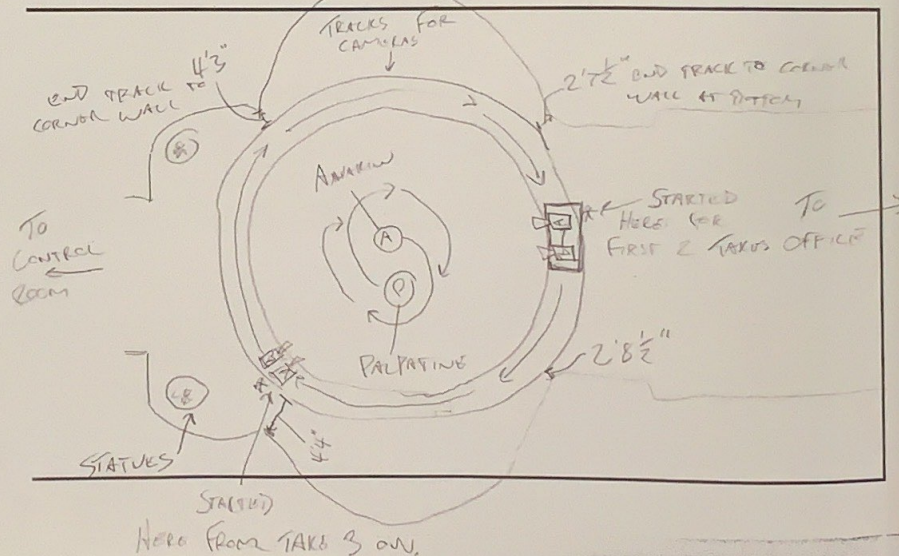 TRACKS FOR
CAMERAS
4'3"
END TRACK TO
CORNER WALL
2'7½" END TRACK TO CORNER
WALL AT BOTTOM
ANAKIN
A
P
PALPATINE
STARTED
HERE FOR
FIRST 2 TAKES
TO
OFFICE
TO
CONTROL
ROOM
2'8½"
44"
STATUES
STARTED
HERE FROM TAKE 3 ON.